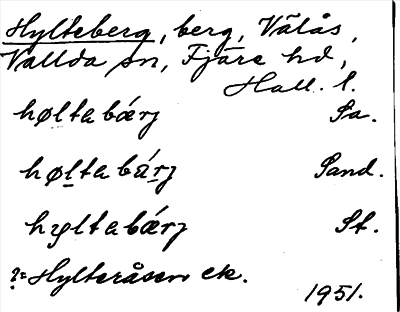 Hylteberg, berg, Välås,
Vallda sn, Fjäre hd,
Hall. l.
høltabǽrj Sa.
hø̱ltabá̱rj Sand.
hyltabǽrj St.
?= Hylteråsen ek.
1951.